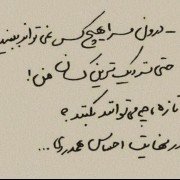 - درون مرا هیچ کس نمی تواند ببیند
حتی نزدیک ترین کسان من!
تازه چه می توانند بکنند؟
در نهایت احساس همدردی...